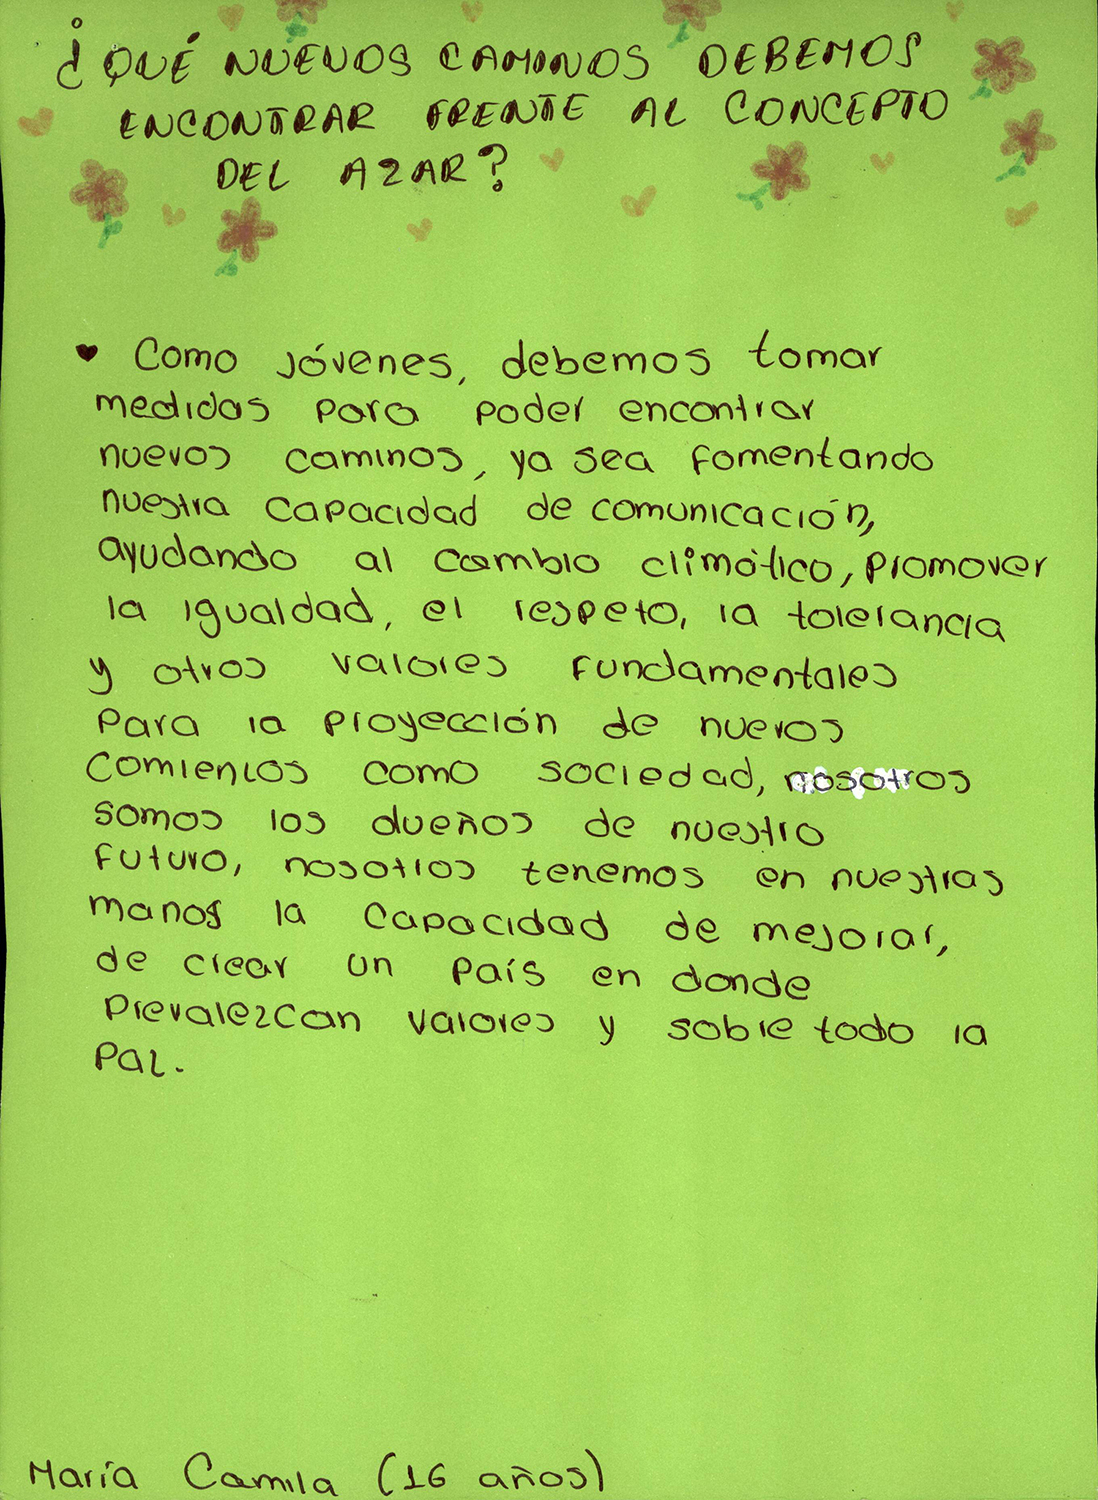 ¿QUÉ NUEVOS CAMINOS DEBEMOS
ENCONTRAR FRENTE AL CONCEPTO
DEL AZAR?
♥ Como jóvenes, debemos tomar
medidas para poder encontrar
nuevos caminos, ya sea fomentando
nuestra capacidad de comunicación,
ayudando al cambio climático, promover
la igualdad, el respeto, la tolerancia
y otros valores fundamentales
para la proyección de nuevos
comienzos como sociedad, nosotros
somos los dueños de nuestro
futuro, nosotros tenemos en nuestras
manos la capacidad de mejorar,
de crear un país en donde
prevalezcan valores y sobre todo la
paz.
María Camila (16 años)